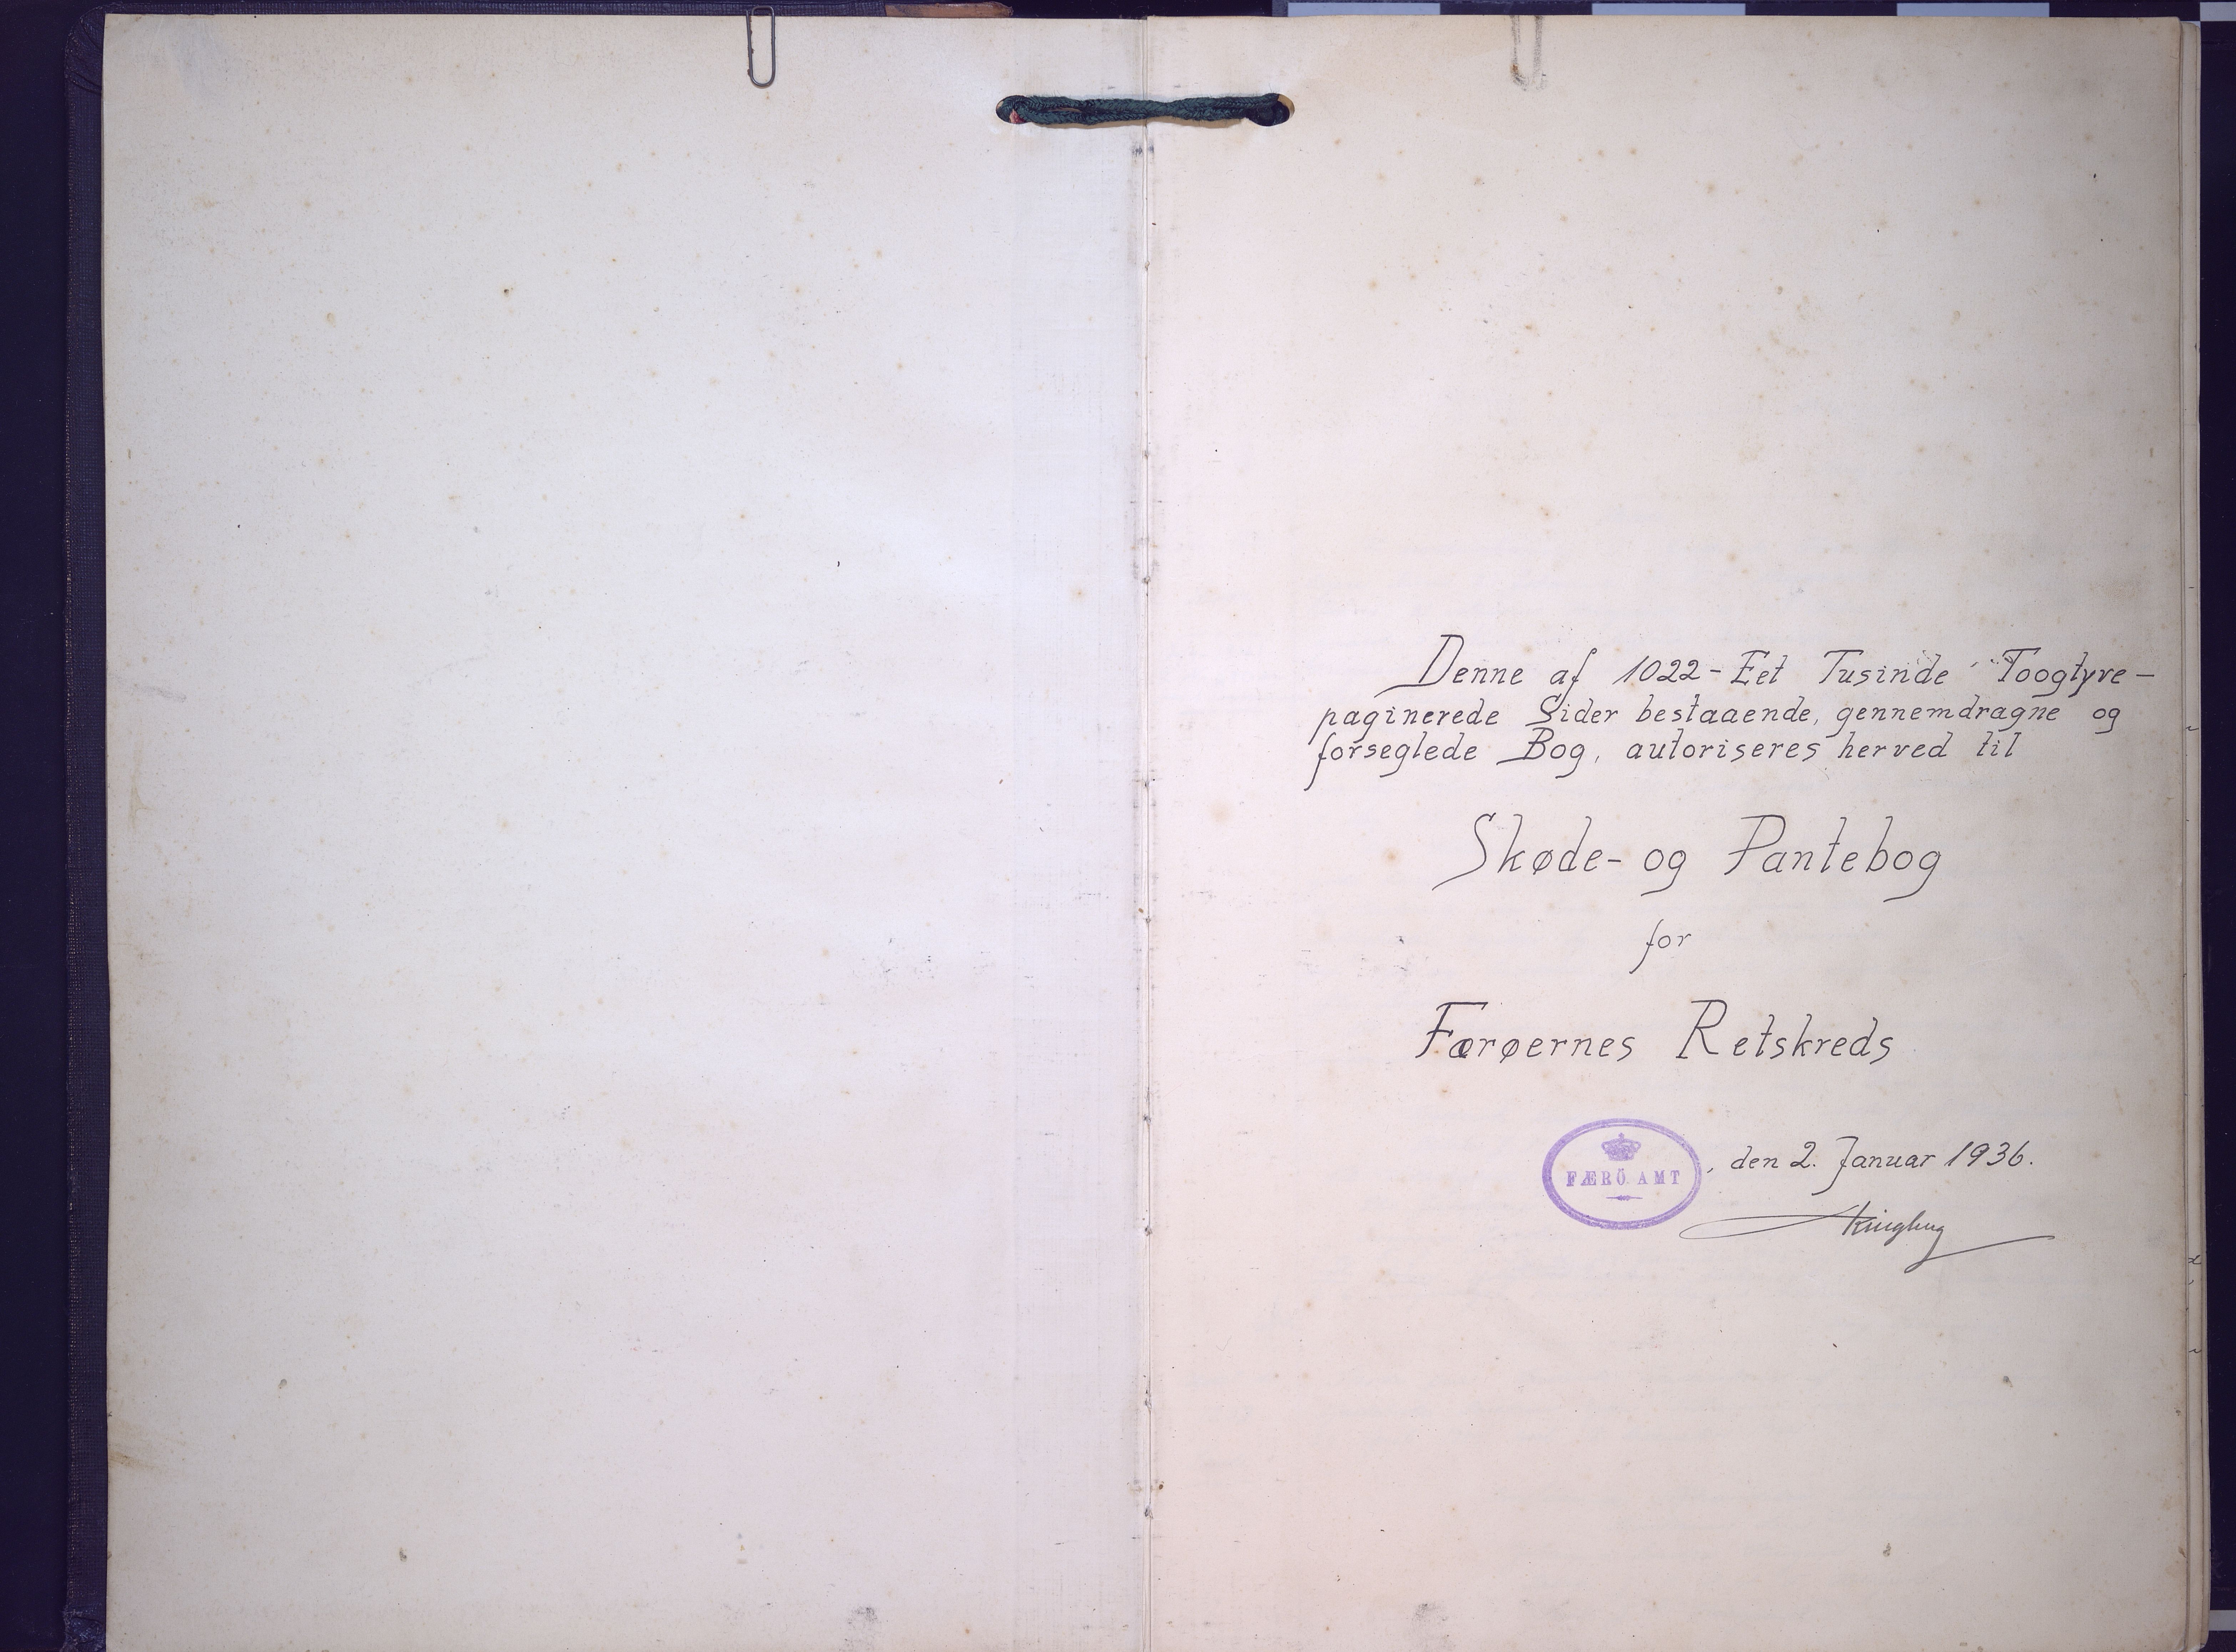 Denne af 1022 - Eet Tusinde Toogtyve -
paginerede Sider bestaaende, gennemdragne og
forseglede Bog, autoriseres herved til
Skøde- og Pantebog
for
Færøernes Retskreds
FÆRÖ AMT
, den 2. Januar 1936.